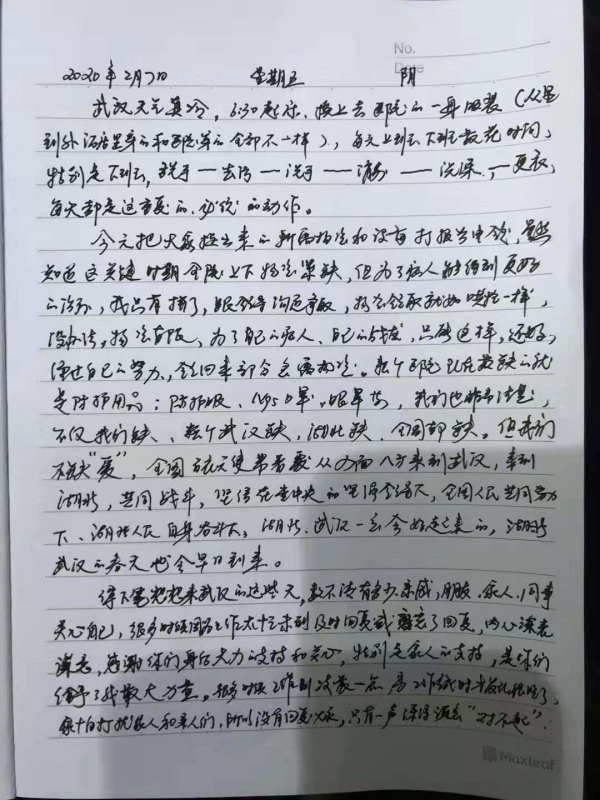 No.
Date
2020年2月7日 星期五 阴
武汉天气真冷，6:30起床，换上去医院的一身服装（从里
到外酒店里穿的和医院穿的全部不一样），每天上班下班最花时间，
特别是下班，洗手——去污——洗手——消——洗澡——更衣，
每天都是这重复的、必须的动作。
今天把大家提出来的新病物资和设备打报告申领，虽然
知道这关键时期全院上下物资紧缺，但为了病人能得到更好
的治疗，我只有拼了，跟领导沟通争取，物资领取就如一样，
没办法，物资有限，为了自己的病人、自己的战友，只能这样，还好，
通过自己的努力，领回来部分急需物资。整个医院现在最缺的就
是防护用品：防护服、N95口罩、眼罩等，我们也非常注意，
不仅我们缺、整个武汉缺，湖北缺、全国都缺。但我们
不缺“爱”，全国白衣天使带着爱从四面八方来到武汉，来到
湖北，共同战斗，坚信在党中央的坚强领导下，全国人民共同努力
下、湖北人民自身奋斗下，湖北、武汉一定会好起来的，湖北
武汉的春天也会早日到来。
停下笔想想来武汉的这些天，数不清有多少亲戚、朋友、家人、同事
关心自己，很多时候因为工作太忙未到及时回复或忘了回复，内心深表
歉意，感谢你们身后大力的支持和关心，特别是家人的支持，是你们
给了我最大力量。很多时候工作到凌晨一点，离工作结束时半夜
害怕打扰家人和亲人们，所以没有回复大家，只有一声深深的“对不起”！
Maxleaf